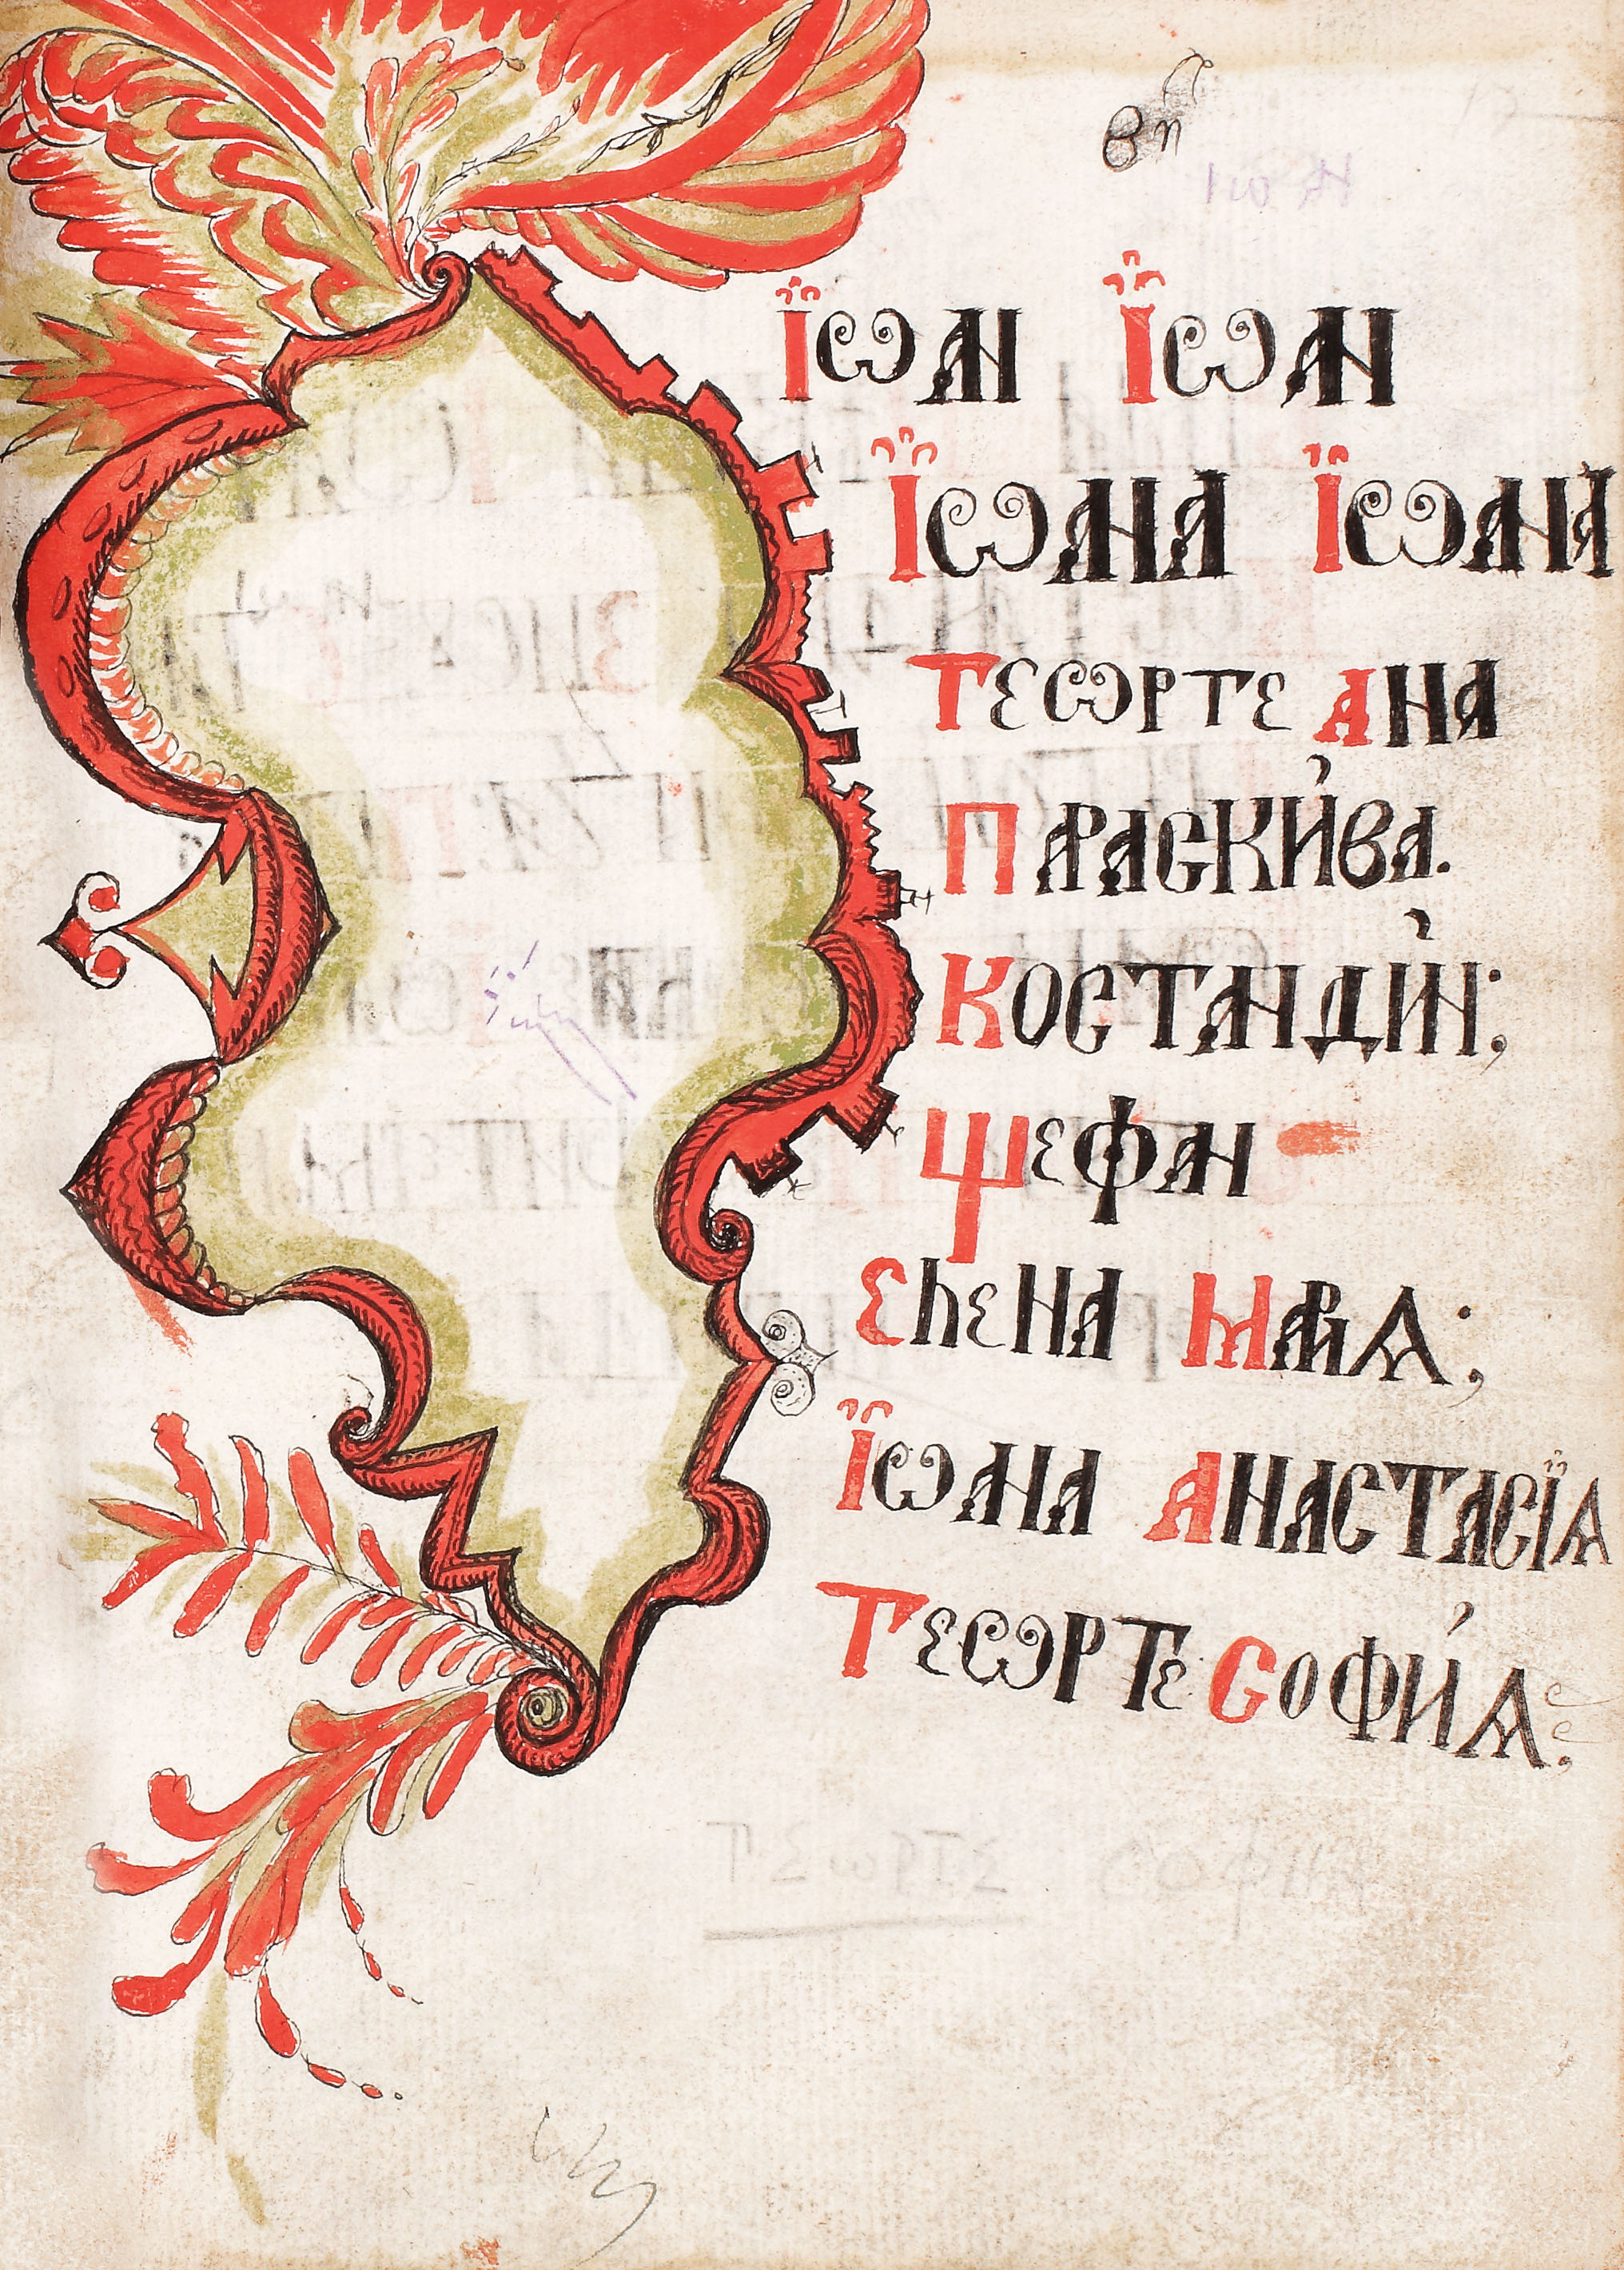 Їѡан Їѡан
Їѡана Їѡана
Геѡрге Ана
Параскѝва.
Костандін;
Шефан
Єлена Марія;
Їѡана Анастасїѧ
Геѡрге Софи́ѧ:
Геѡрге Софиѧ